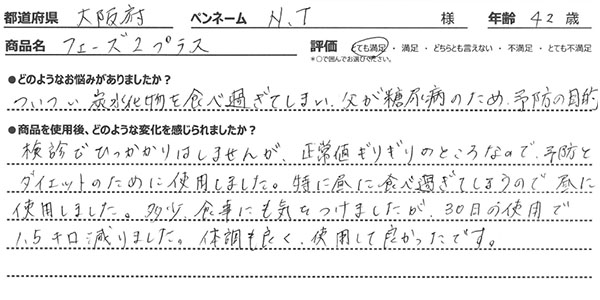 都道府県 大阪府 ペンネーム N.T 様 年齢 42 歳
商品名 フェーズ2プラス 評価 とても満足 ・ 満足 ・ どちらとも言えない ・ 不満足 ・ とても不満足
*○で囲んでお選びください。
●どのようなお悩みがありましたか？
ついつい炭水化物を食べ過ぎてしまい、父が糖尿病のため、予防の目的
●商品を使用後、どのような変化を感じられましたか？
検診でひっかかりはしませんが、正常値ギリギリのところなので、予防と
ダイエットのために使用しました。特に昼に食べ過ぎてしまうので昼に
使用しました。多少、食事にも気をつけましたが、30日の使用で
1.5キロ減りました。体調も良く、使用して良かったです。